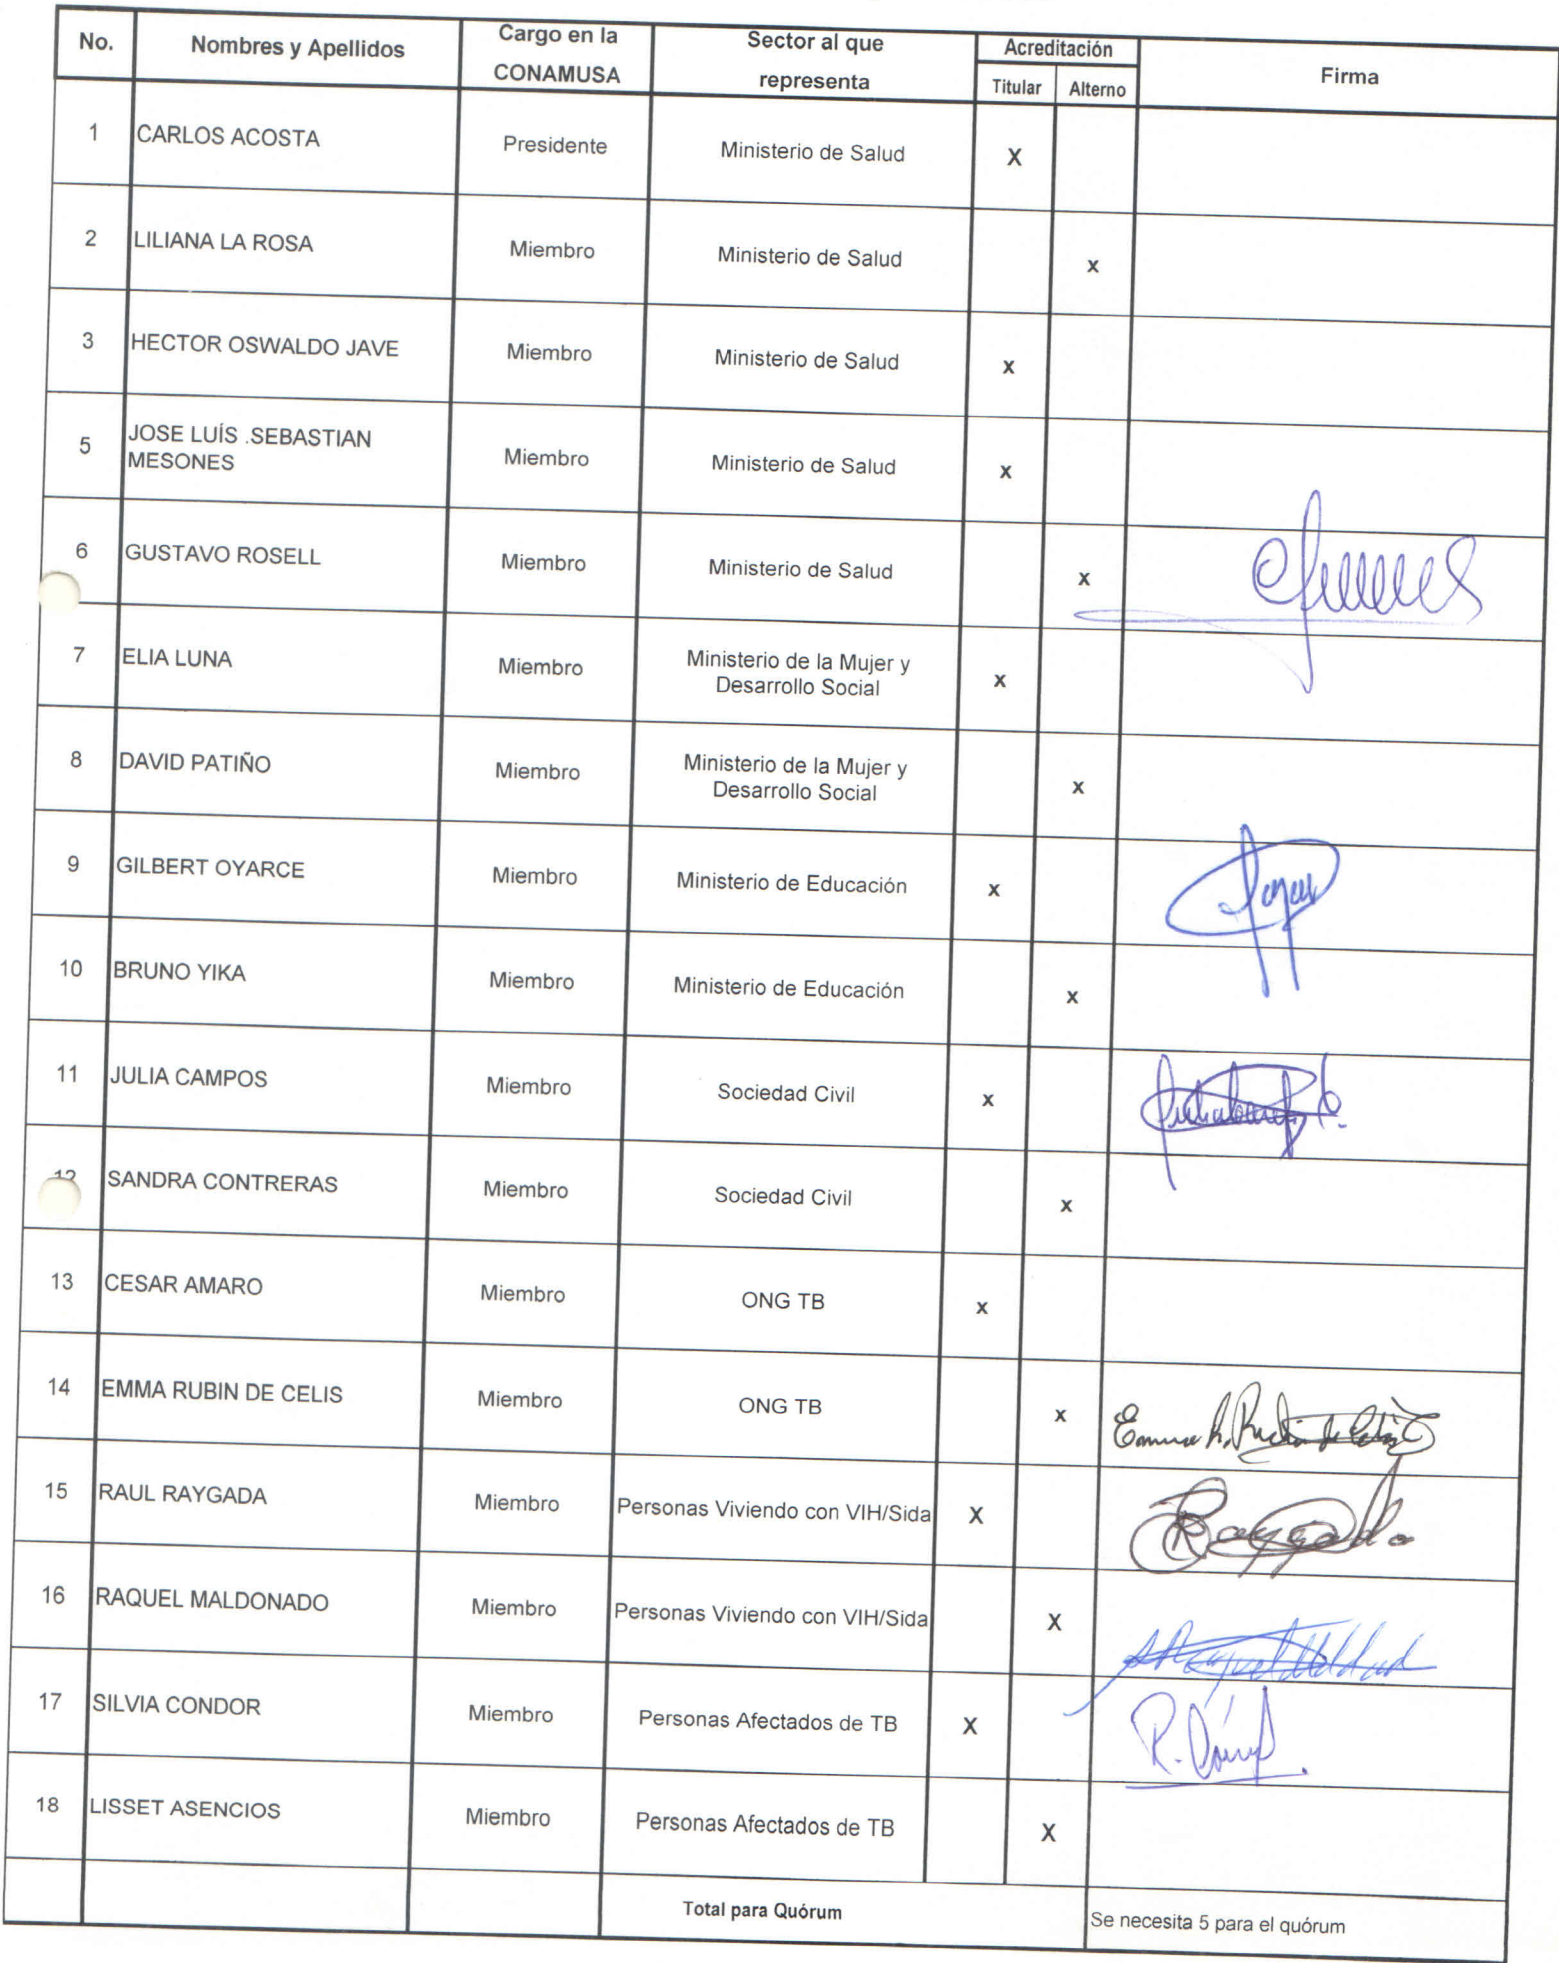 No. Nombres y Apellidos Cargo en la CONAMUSA Sector al que representa Acreditación Firma
Titular Alterno
1 CARLOS ACOSTA Presidente Ministerio de Salud X
2 LILIANA LA ROSA Miembro Ministerio de Salud x
3 HECTOR OSWALDO JAVE Miembro Ministerio de Salud x
5 JOSE LUÍS .SEBASTIAN MESONES Miembro Ministerio de Salud x
6 GUSTAVO ROSELL Miembro Ministerio de Salud x
7 ELIA LUNA Miembro Ministerio de la Mujer y Desarrollo Social x
8 DAVID PATIÑO Miembro Ministerio de la Mujer y Desarrollo Social x
9 GILBERT OYARCE Miembro Ministerio de Educación x
10 BRUNO YIKA Miembro Ministerio de Educación x
11 JULIA CAMPOS Miembro Sociedad Civil x
12 SANDRA CONTRERAS Miembro Sociedad Civil x
13 CESAR AMARO Miembro ONG TB x
14 EMMA RUBIN DE CELIS Miembro ONG TB x
15 RAUL RAYGADA Miembro Personas Viviendo con VIH/Sida X Raygada
16 RAQUEL MALDONADO Miembro Personas Viviendo con VIH/Sida X
17 SILVIA CONDOR Miembro Personas Afectados de TB X
18 LISSET ASENCIOS Miembro Personas Afectados de TB X
Total para Quórum Se necesita 5 para el quórum